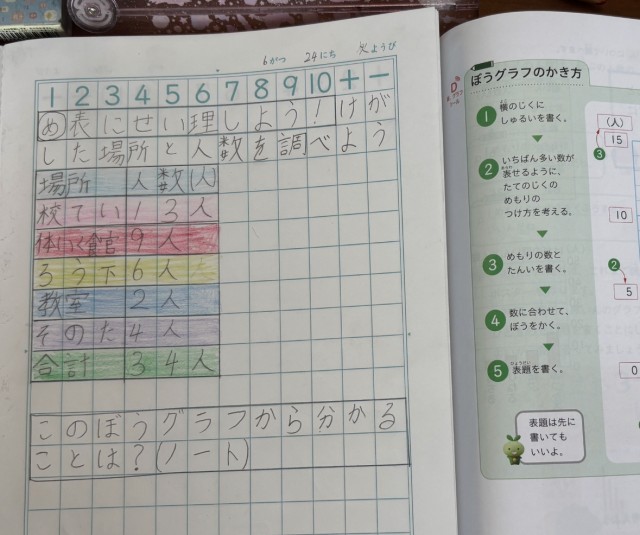 6がつ 24にち 火ようび
1 2 3 4 5 6 7 8 9 10 + −
め 表にせい理しよう! けが
した場所と人数を調べよう
場所 人数(人)
校てい 13人
体いく館 9人
ろう下 6人
教室 2人
そのた 4人
合計 34人
このぼうグラフから分かる
ことは?(ノート)
ぼうグラフのかき方
1 横のじくに
しゅるいを書く。
2 いちばん多い数が
表せるように、
たてのじくの
めもりの
つけ方を考える。
3 めもりの数と
たんいを書く。
4 数に合わせて、
ぼうをかく。
5 表題を書く。
表題は先に
書いても
いいよ。
(人)
15
3
10
2
5
0